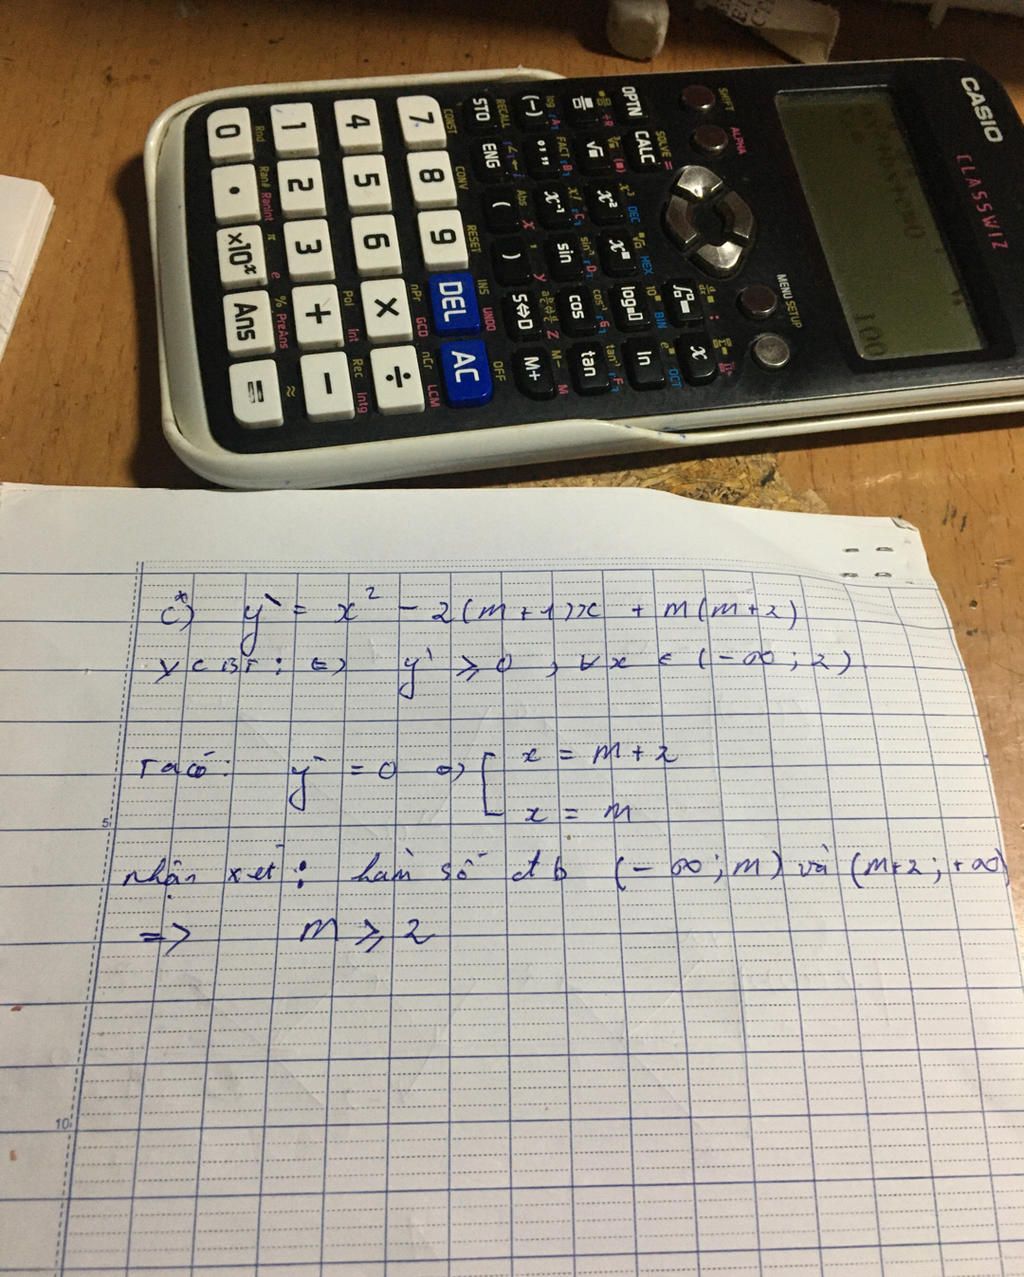 CASIO
CLASSWIZ
SHIFT ALPHA MENU SETUP
OPTN CALC
√x x² x
(-) sin cos tan
log ln
STO ENG ( ) S⇔D M+
7 8 9 DEL AC
4 5 6 × ÷
1 2 3 + −
0 . ×10ˣ Ans =
c*) y' = x² - 2(m+1)x + m(m+2)
YCBT : ⇔ y' ⩾ 0 , ∀x ∈ (-∞; 2)
Ta có: y' = 0 ⇔ [ x = m+2
x = m
5
nhận xét : hàm số đb (-∞; m) và (m+2; +∞)
=> m ⩾ 2
10